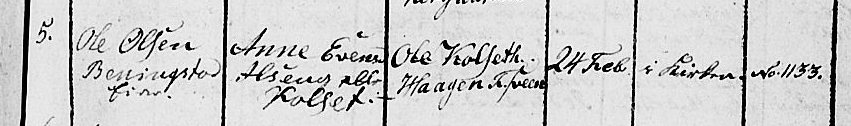 5.
Ole Olsen
Beningstad
Eier.
Anne Evens
Alseng eller
Kolset.
Ole Kolseth.
Haagen
24 Feb.
i Kirken.
No. 1133.